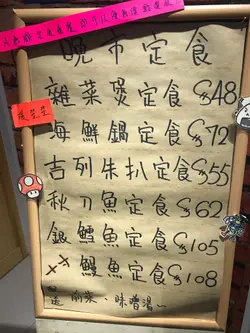 晚市定食
雜菜煲定食 $48
海鮮鍋定食 $72
吉列朱扒定食 $55
秋刀魚定食 $62
銀鱈魚定食 $105
鰻魚定食 $108
前菜、味噌湯~